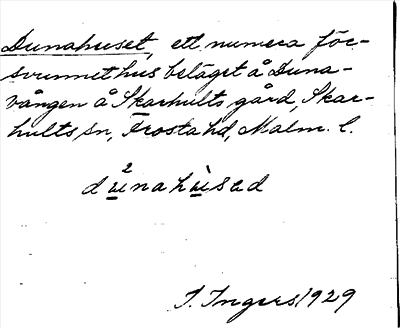 Dunahuset, ett numera för-
svunnet hus beläget å Duna-
vången å Skarhults gård, Skar-
hults sn, Frosta hd, Malm. l.
d²u̲nahù̲sad
I. Ingers 1929